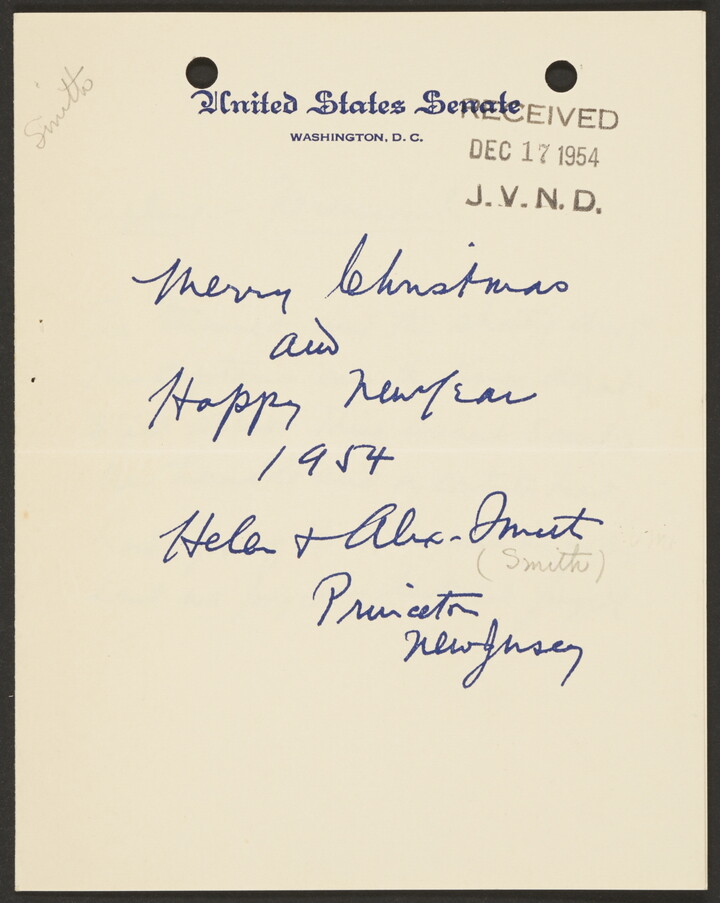 Smith
United States Senate
WASHINGTON, D. C.
RECEIVED
DEC 17 1954
J. V. N. D.
Merry Christmas
and
Happy New Year
1954
Helen & Alex. Smith
(Smith)
Princeton
New Jersey